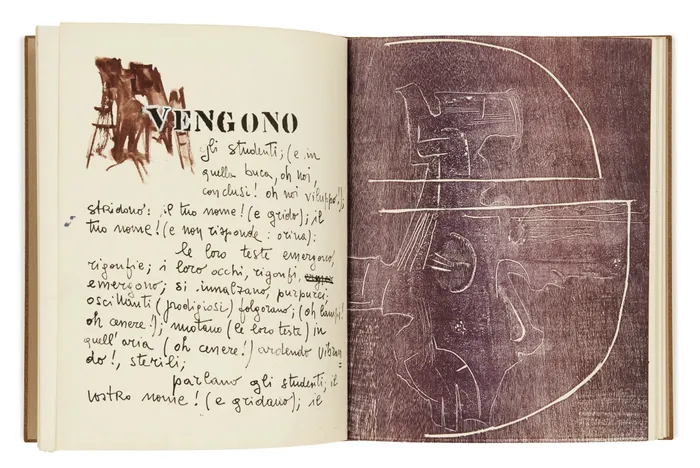 VENGONO
gli studenti; (e in
quella buca, oh noi,
conclusi! oh noi viluppo!);
stridono: il tuo nome! (e grido); il
tuo nome! (e non risponde: orina):
le loro teste emergono,
rigonfie; i loro occhi, rigonfi,
emergono; si innalzano, purpurei,
oscillanti (prodigiosi) folgorano; (oh lampi!
oh cenere!); nuotano (le loro teste) in
quell'aria (oh cenere!) ardendo vibran=
do!, sterili;
parlano gli studenti; il
vostro nome! (e gridano); il